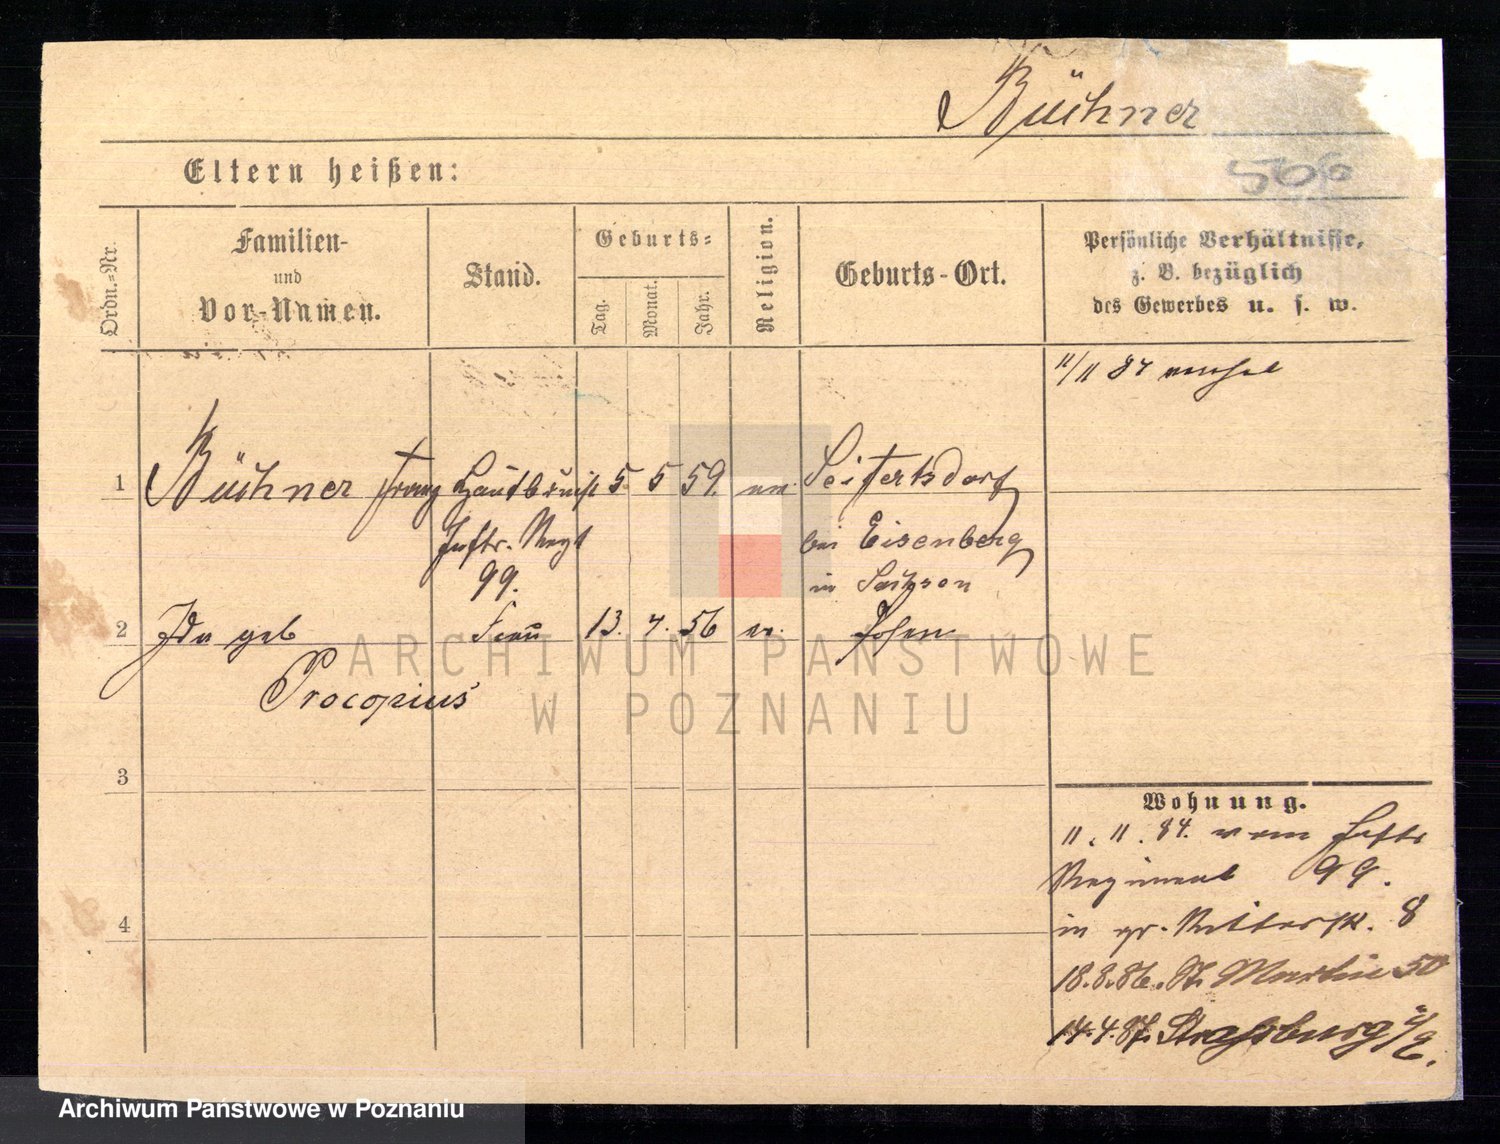 Büchner
506
Eltern heißen:
Ordn.-Nr.
Familien-
und
Vor-Namen.
Stand.
Geburts-
Tag.
Monat.
Jahr.
Religion.
Geburts-Ort.
Persönliche Verhältnisse,
z. B. bezüglich
des Gewerbes u. s. w.
11/11 84
1 Büchner Franz Hautboist 5. 5 59. ev. Seifertsdorf
Inftr. Regt bei Eisenberg
99. in Sachsen
2 Ida geb Frau 13. 4. 56 ev. Posen
Procopius
3
4
Wohnung.
11. 11. 84. vom Inftr
Regiment 99.
in gr. Ritterstr. 8
18.8.86. St. Martin 50
14.4.87. Strassburg i/E.
ARCHIWUM PAŃSTWOWE
W POZNANIU
Archiwum Państwowe w Poznaniu